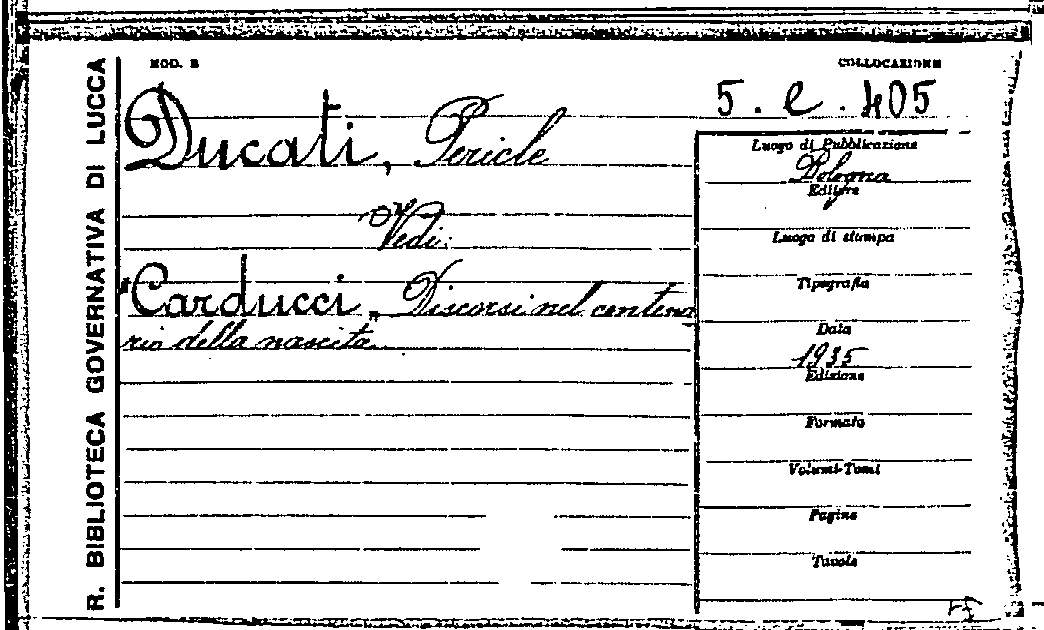 R. BIBLIOTECA GOVERNATIVA DI LUCCA
MOD. B
COLLOCAZIONE
5. e. 405
Ducati, Pericle
Vedi:
"Carducci" Discorsi nel centena
rio della nascita.
Luogo di Pubblicazione
Bologna
Editore
Luogo di stampa
Tipografia
Data
1935
Edizione
Formato
Volumi-Tomi
Pagine
Tavole